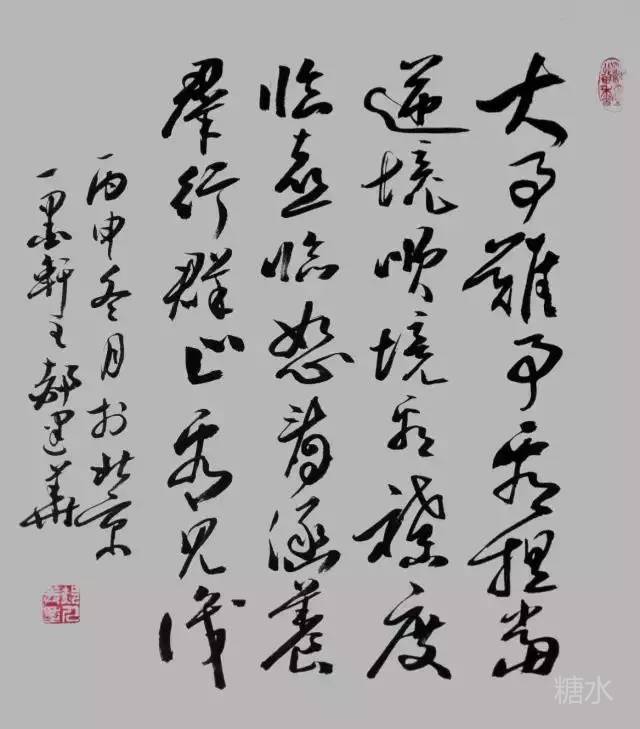 大事難事看担當
逆境順境看襟度
臨喜臨怒看涵養
羣行群止看見識
丙申冬月於北京
一墨軒主郝建華
糖水